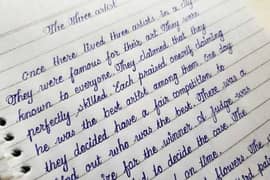 The three artist
Once there lived three artists in a city
They were famous for their art. They were
known to everyone. They claimed that they
perfectly skilled. Each praised ownerly claiming
he was the best artist among them. One day
they decided have a fair competition to
out who was the best. There was a
for the winner. A judge was
to decide the case. The
on time.
flowers. The